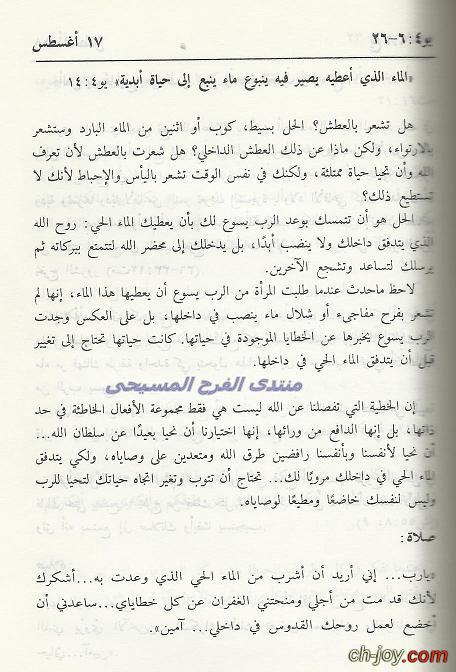 يو٤:٦-٢٦
١٧ أغسطس
«الماء الذي أعطيه يصير فيه ينبوع ماء ينبع إلى حياة أبدية» يو٤:١٤
هل تشعر بالعطش؟ الحل بسيط، كوب أو اثنين من الماء البارد وستشعر
بالارتواء، ولكن ماذا عن ذلك العطش الداخلي؟ هل شعرت بالعطش لأن تعرف
الله وأن تحيا حياة ممتلئة، ولكنك في نفس الوقت تشعر باليأس والإحباط لأنك لا
تستطيع ذلك؟
الحل هو أن تتمسك بوعد الرب يسوع لك بأن يعطيك الماء الحي: روح الله
الذي يتدفق داخلك ولا ينضب أبدًا، بل يدخلك إلى محضر الله لتتمتع ببركاته ثم
يرسلك لتساعد وتشجع الآخرين.
لاحظ ماحدث عندما طلبت المرأة من الرب يسوع أن يعطيها هذا الماء، إنها لم
تشعر بفرح مفاجىء أو شلال ماء ينصب في داخلها، بل على العكس وجدت
الرب يسوع يخبرها عن الخطايا الموجودة في حياتها. كانت حياتها تحتاج إلى تغيير
قبل أن يتدفق الماء الحي في داخلها.
منتدى الفرح المسيحى
إن الخطية التي تفصلنا عن الله ليست هي فقط مجموعة الأفعال الخاطئة في حد
ذاتها، بل إنها الدافع من ورائها، إنها اختيارنا أن نحيا بعيدًا عن سلطان الله...
أن نحيا لأنفسنا وبأنفسنا رافضين طرق الله ومتعدين على وصاياه، ولكي يتدفق
الماء الحي في داخلك مرويًا لك... تحتاج أن تتوب وتغير اتجاه حياتك لتحيا للرب
وليس لنفسك خاضعًا ومطيعًا لوصاياه.
صلاة:
«يارب... إني أريد أن أشرب من الماء الحي الذي وعدت به...أشكرك
لأنك قد مت من أجلي ومنحتني الغفران عن كل خطاياي...ساعدني أن
أخضع لعمل روحك القدوس في داخلي... آمين».
ch-joy.com